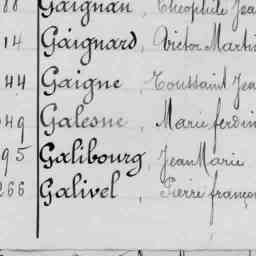 88 Gaignan, Théophile Jea
14 Gaignard, Victor Marti
44 Gaigne, Toussaint Jea
049 Galesne, Marie ferdin
95 Galibourg, Jean Marie
266 Galivel, Pierre franço